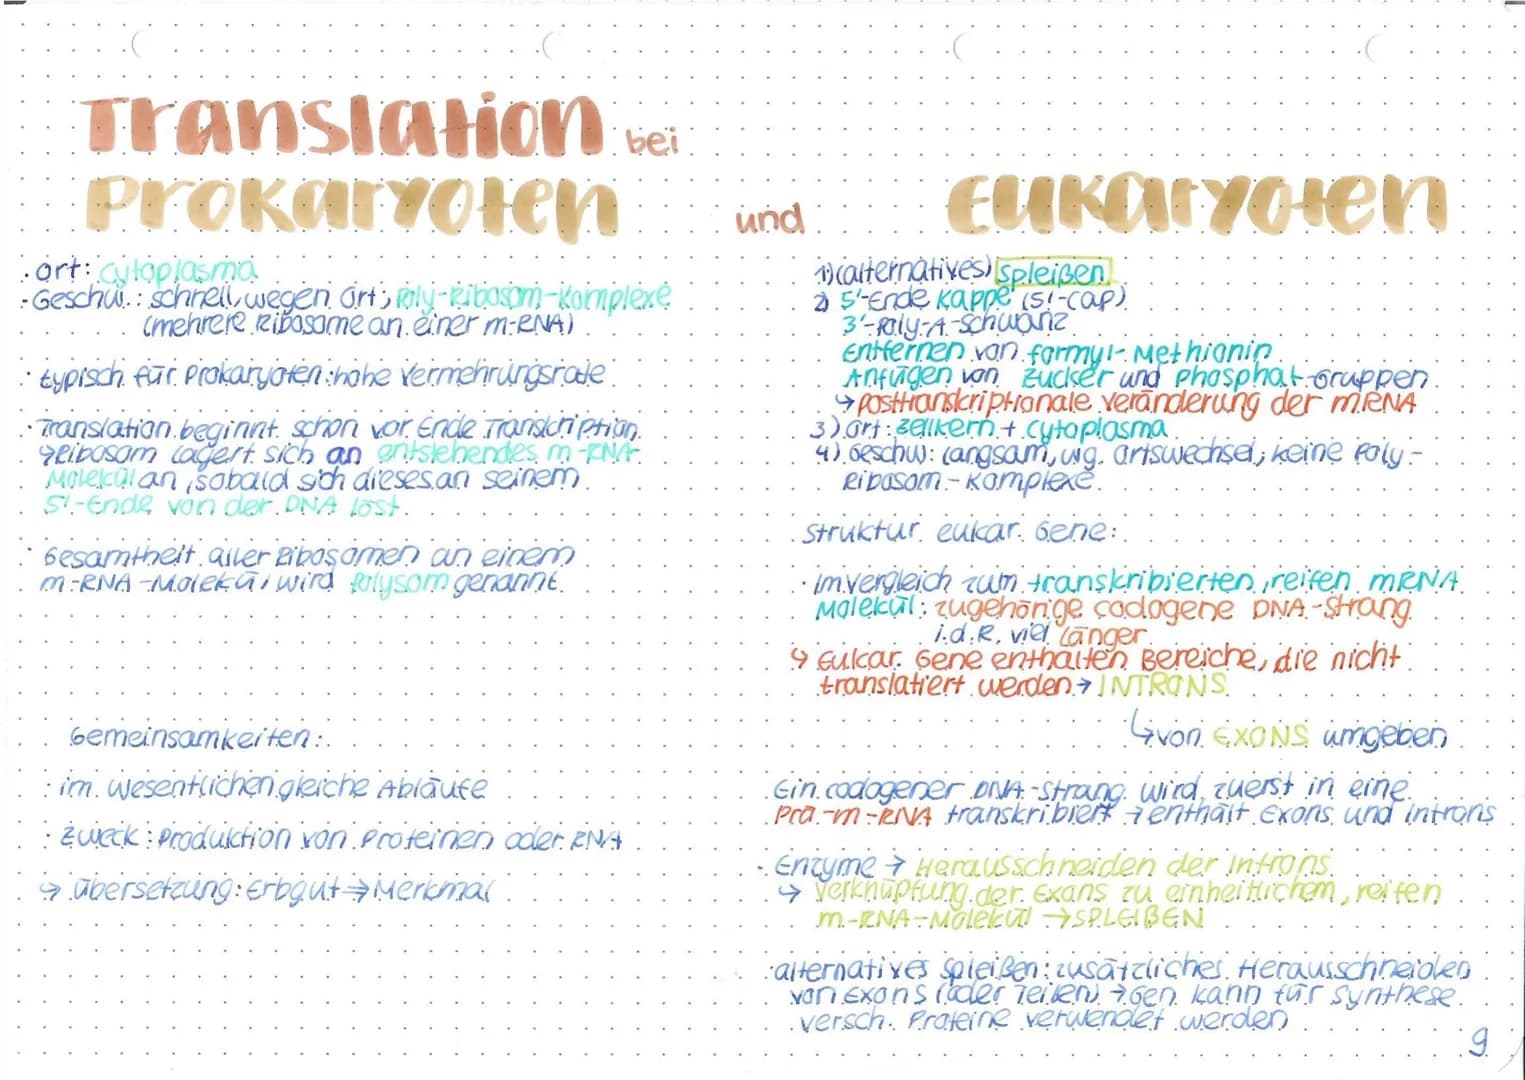 Translation bei
Prokaryoten und Eukaryoten
· Ort: Cytoplasma
· Geschw.: schnell, wegen Ort; Poly-Ribosom-Komplexe
(mehrere Ribosome an einer m-RNA)
· typisch für Prokaryoten: hohe Vermehrungsrate
· Translation beginnt schon vor Ende Transkription
↳ Ribosom lagert sich an entstehendes m-RNA-
Molekül an, sobald sich dieses an seinem
5'-Ende von der DNA löst.
· Gesamtheit aller Ribosomen an einem
m-RNA-Molekül wird Polysom genannt.
Gemeinsamkeiten:
· im Wesentlichen gleiche Abläufe
· Zweck: Produktion von Proteinen oder RNA
↳ Übersetzung: Erbgut ⇒ Merkmal
1) (alternatives) Spleißen
2) 5'-Ende Kappe (5'-Cap)
3'-Poly-A-Schwanz
Entfernen von Formyl-Methionin
Anfügen von Zucker und Phosphat-Gruppen
↳ posttranskriptionale Veränderung der mRNA
3) Ort: Zellkern + Cytoplasma
4) Geschw: langsam, wg. Ortswechsel; keine Poly-
Ribosom-Komplexe.
Struktur eukar. Gene:
· im Vergleich zum transkribierten, reifen mRNA
Molekül: zugehörige codogene DNA-Strang
i.d.R. viel länger
↳ Eukar. Gene enthalten Bereiche, die nicht
translatiert werden → INTRONS
↳ von EXONS umgeben
Ein codogener DNA-Strang wird zuerst in eine
Prä-m-RNA transkribiert → enthält Exons und Introns
· Enzyme → Herausschneiden der Introns
↳ Verknüpfung der Exons zu einheitlichem, reifen
m-RNA-Molekül → SPLEIßEN
· alternatives Spleißen: zusätzliches Herausschneiden
von Exons (oder Teilen) → Gen kann für Synthese
versch. Proteine verwendet werden
9